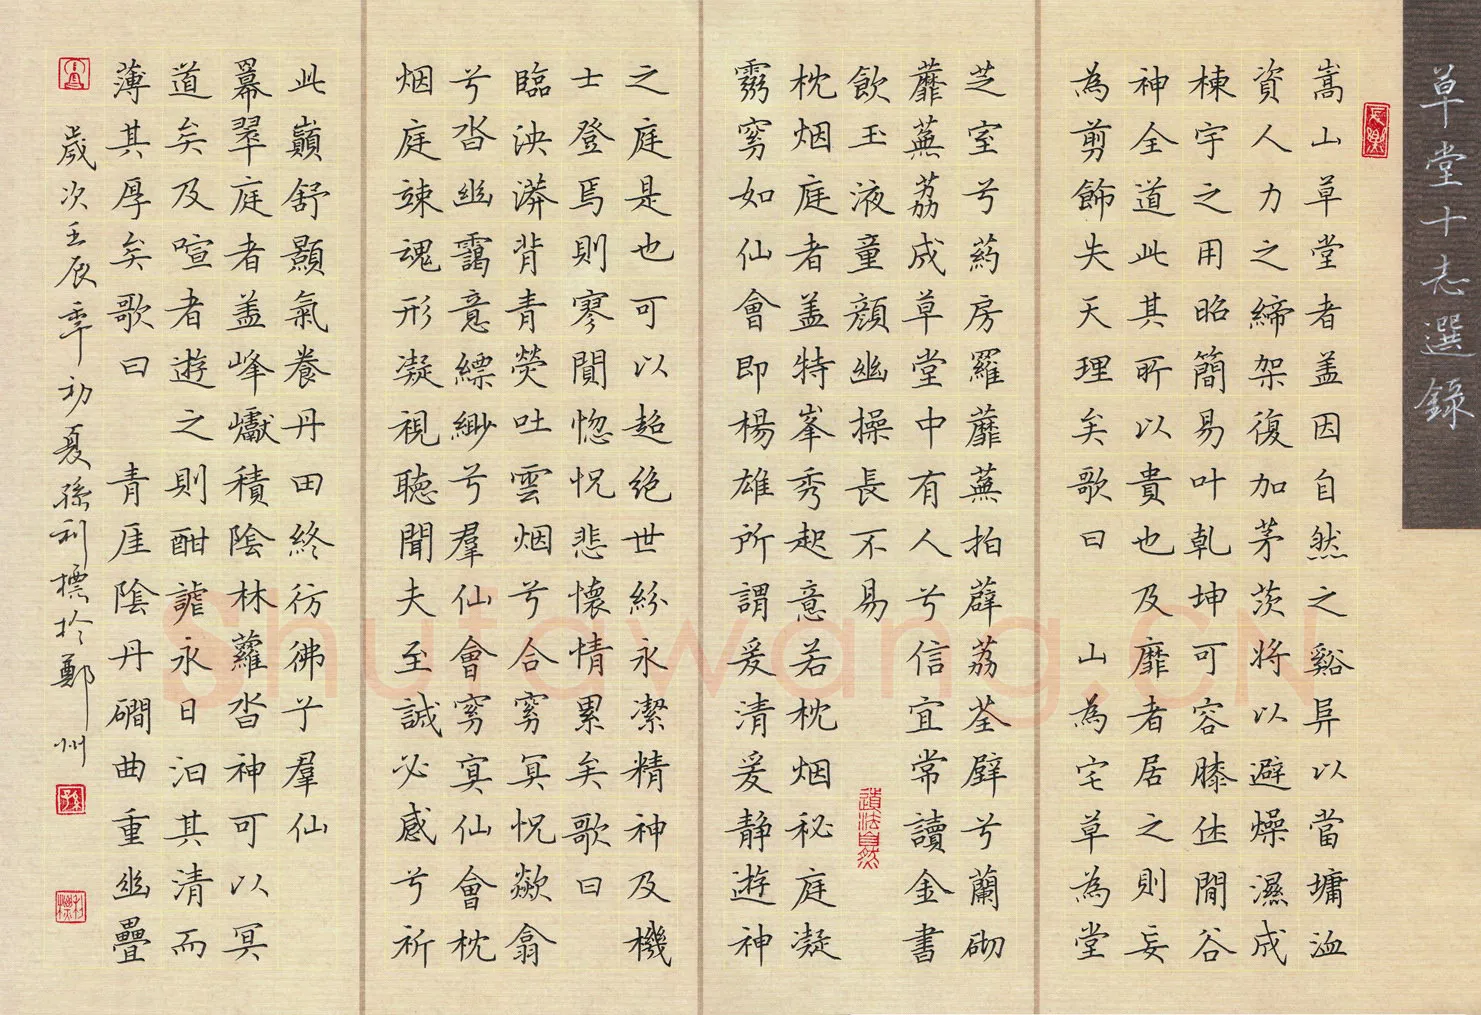 草堂十志選錄
嵩山草堂者盖因自然之谿阜以當墉洫
資人力之締架復加茅茨將以避燥濕成
棟宇之用昭簡易叶乾坤可容膝休閒谷
神全道此其所以貴也及靡者居之則妄
為剪飾失天理矣歌曰 山為宅草為堂
芝室兮葯房羅蘼蕪拍薜荔荃壁兮蘭砌
蘼蕪荔成草堂中有人兮信宜常讀金書
飲玉液童顏幽操長不易
道法自然
枕烟庭者盖特峯秀起意若枕烟秘庭凝
窈如仙會即楊雄所謂爰清爰静遊神
之庭是也可以超绝世紛永潔精神及機
士登焉則寥闃惚怳悲懷情累矣歌曰
臨泱漭背青熒吐雲烟兮合窈冥怳欻翕
兮沓幽靄意縹緲兮羣仙會窈冥仙會枕
烟庭竦魂形凝視聽聞夫至誠必感兮祈
此巔舒顥氣養丹田終彷彿兮羣仙
羃翠庭者盖峰巘積陰林蘿沓神可以冥
道矣及喧者遊之則酣謔永日汩其清而
薄其厚矣歌曰 青厓陰丹磵曲重幽疊
歲次壬辰年初夏孫利標於鄭州
Shufawang.CN